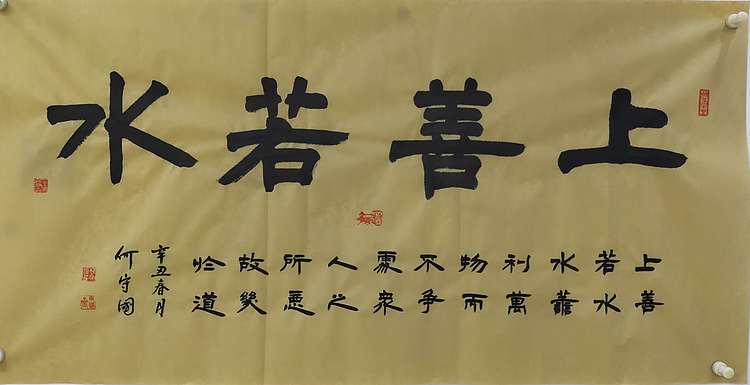 上善若水
上善
若水
水譱
利萬
物而
不争
處衆
人之
所惡
故幾
於道
辛丑春月
何守國